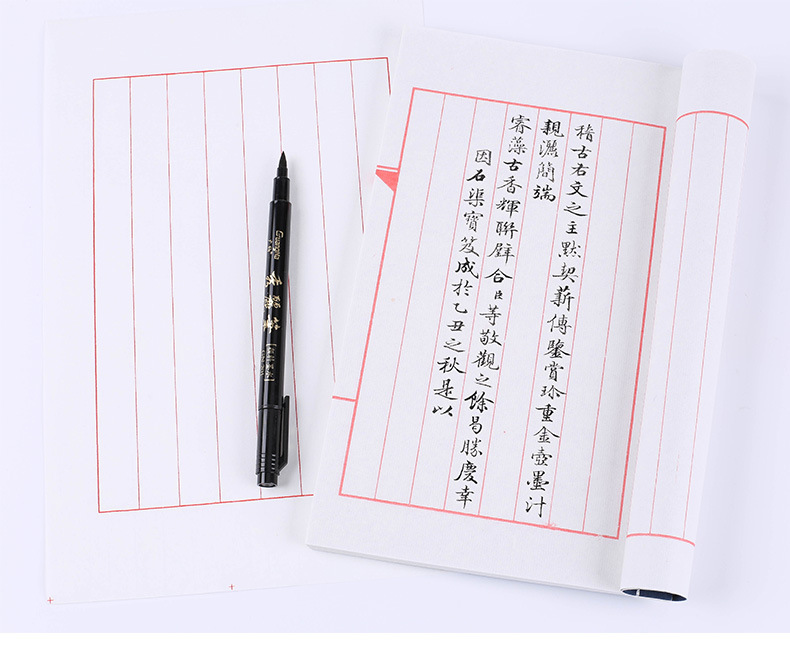 稽古右文之主默契薪傳鑒賞珍重金壺墨汁
親灑簡端
睿藻古香輝聯璧合臣等敬觀之餘曷勝慶幸
因石渠寶笈成於乙丑之秋是以
秀麗筆